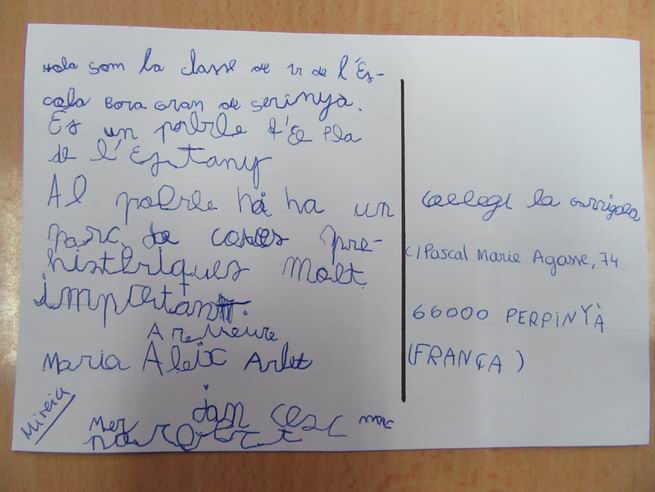 Hola som la classe de 1r de l'Es-
cola Bora Gran de Serinyà.
És un poble d'El Pla
de l'Estany
Al poble hi ha un
parc de coves pre-
històriques molt
important.
A reveure
Maria Aleix Arlet
Jan Cesc
Mireia
Col·legi la Garrigola
C/Pascal Marie Agasse, 74
66000 PERPINYÀ
(FRANÇA)